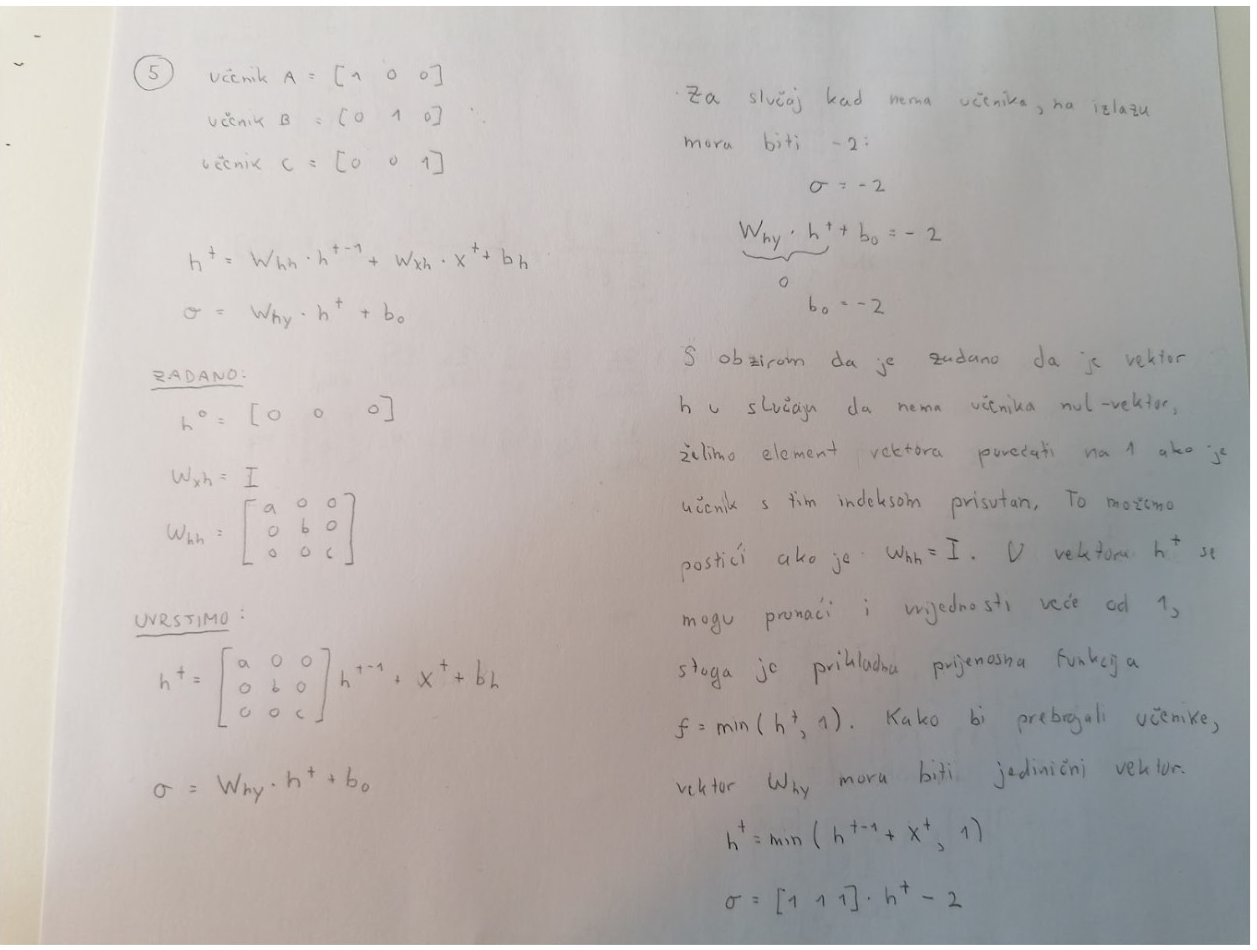 5
učenik A = [1 0 0]
učenik B = [0 1 0]
učenik C = [0 0 1]
h^t = W_hh · h^t-1 + W_xh · x^t + b_h
σ = W_hy · h^t + b_o
ZADANO:
h^0 = [0 0 0]
W_xh = I
W_hh = [a 0 0
0 b 0
0 0 c]
UVRSTIMO:
h^t = [a 0 0
0 b 0
0 0 c] h^t-1 + x^t + b_h
σ = W_hy · h^t + b_o
Za slučaj kad nema učenika, na izlazu
mora biti -2:
σ = -2
W_hy · h^t + b_o = -2
0
b_o = -2
S obzirom da je zadano da je vektor
h u slučaju da nema učenika nul-vektor,
želimo element vektora povećati na 1 ako je
učenik s tim indeksom prisutan, To možemo
postići ako je W_hh = I. U vektoru h^t se
mogu pronaći i vrijednosti veće od 1,
stoga je prikladna prijenosna funkcija
f = min(h^t, 1). Kako bi prebrojali učenike,
vektor W_hy mora biti jedinični vektor.
h^t = min(h^t-1 + x^t, 1)
σ = [1 1 1] · h^t - 2